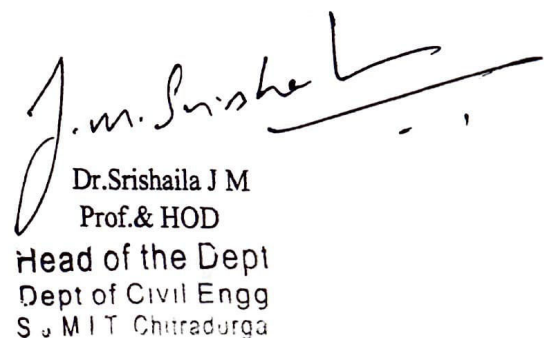 J.M.Srishaila
Dr.Srishaila J M
Prof.& HOD
Head of the Dept
Dept of Civil Engg
S J M I T Chitradurga